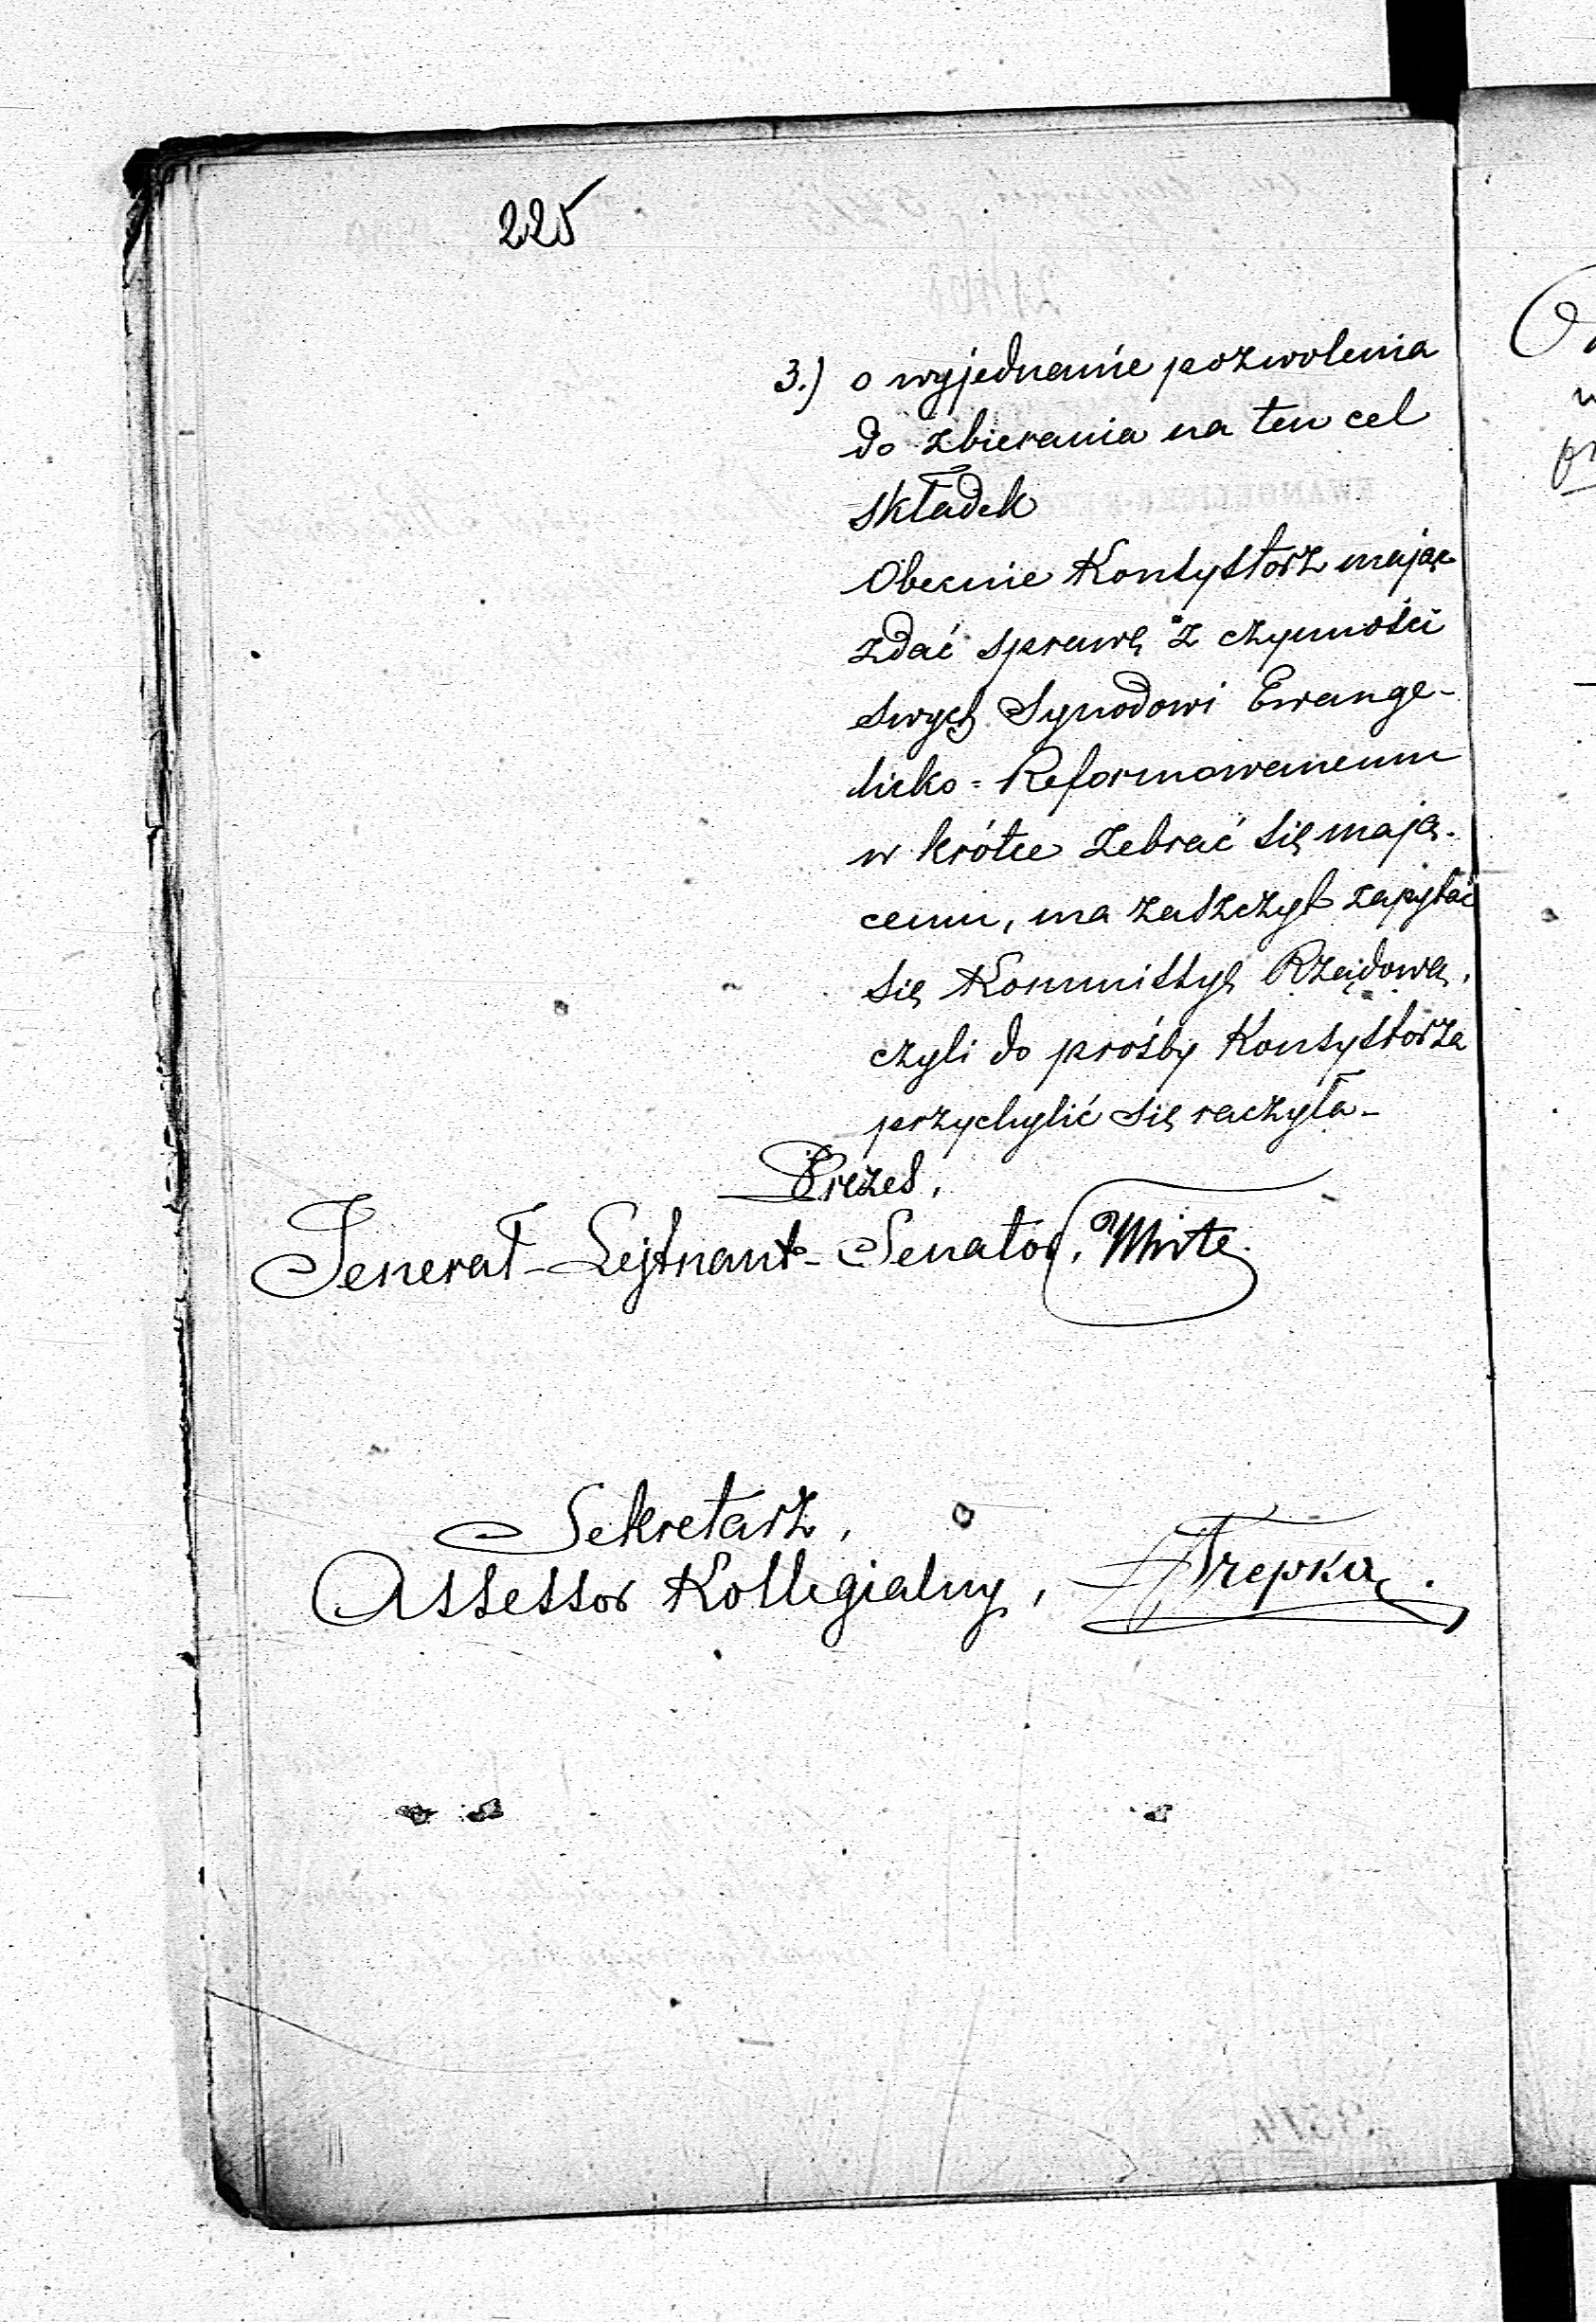 225
3.) o wyjednanie pozwolenia
do zbierania na ten cel
składek
Obecnie Konsystorz mając
zdać sprawę z czynności
swych Synodowi Ewange-
licko=Reformowanemu
w krótce zebrać się mają-
cemu, ma zaszczyt zapytać
się Kommissyę Rządową,
czyli do prośby Konsystorza
przychylić się raczyła-
Prezes,
Jenerał-Lejtnant-Senator, Witte.
Sekretarz,
Assessor Kollegialny, Trepka.